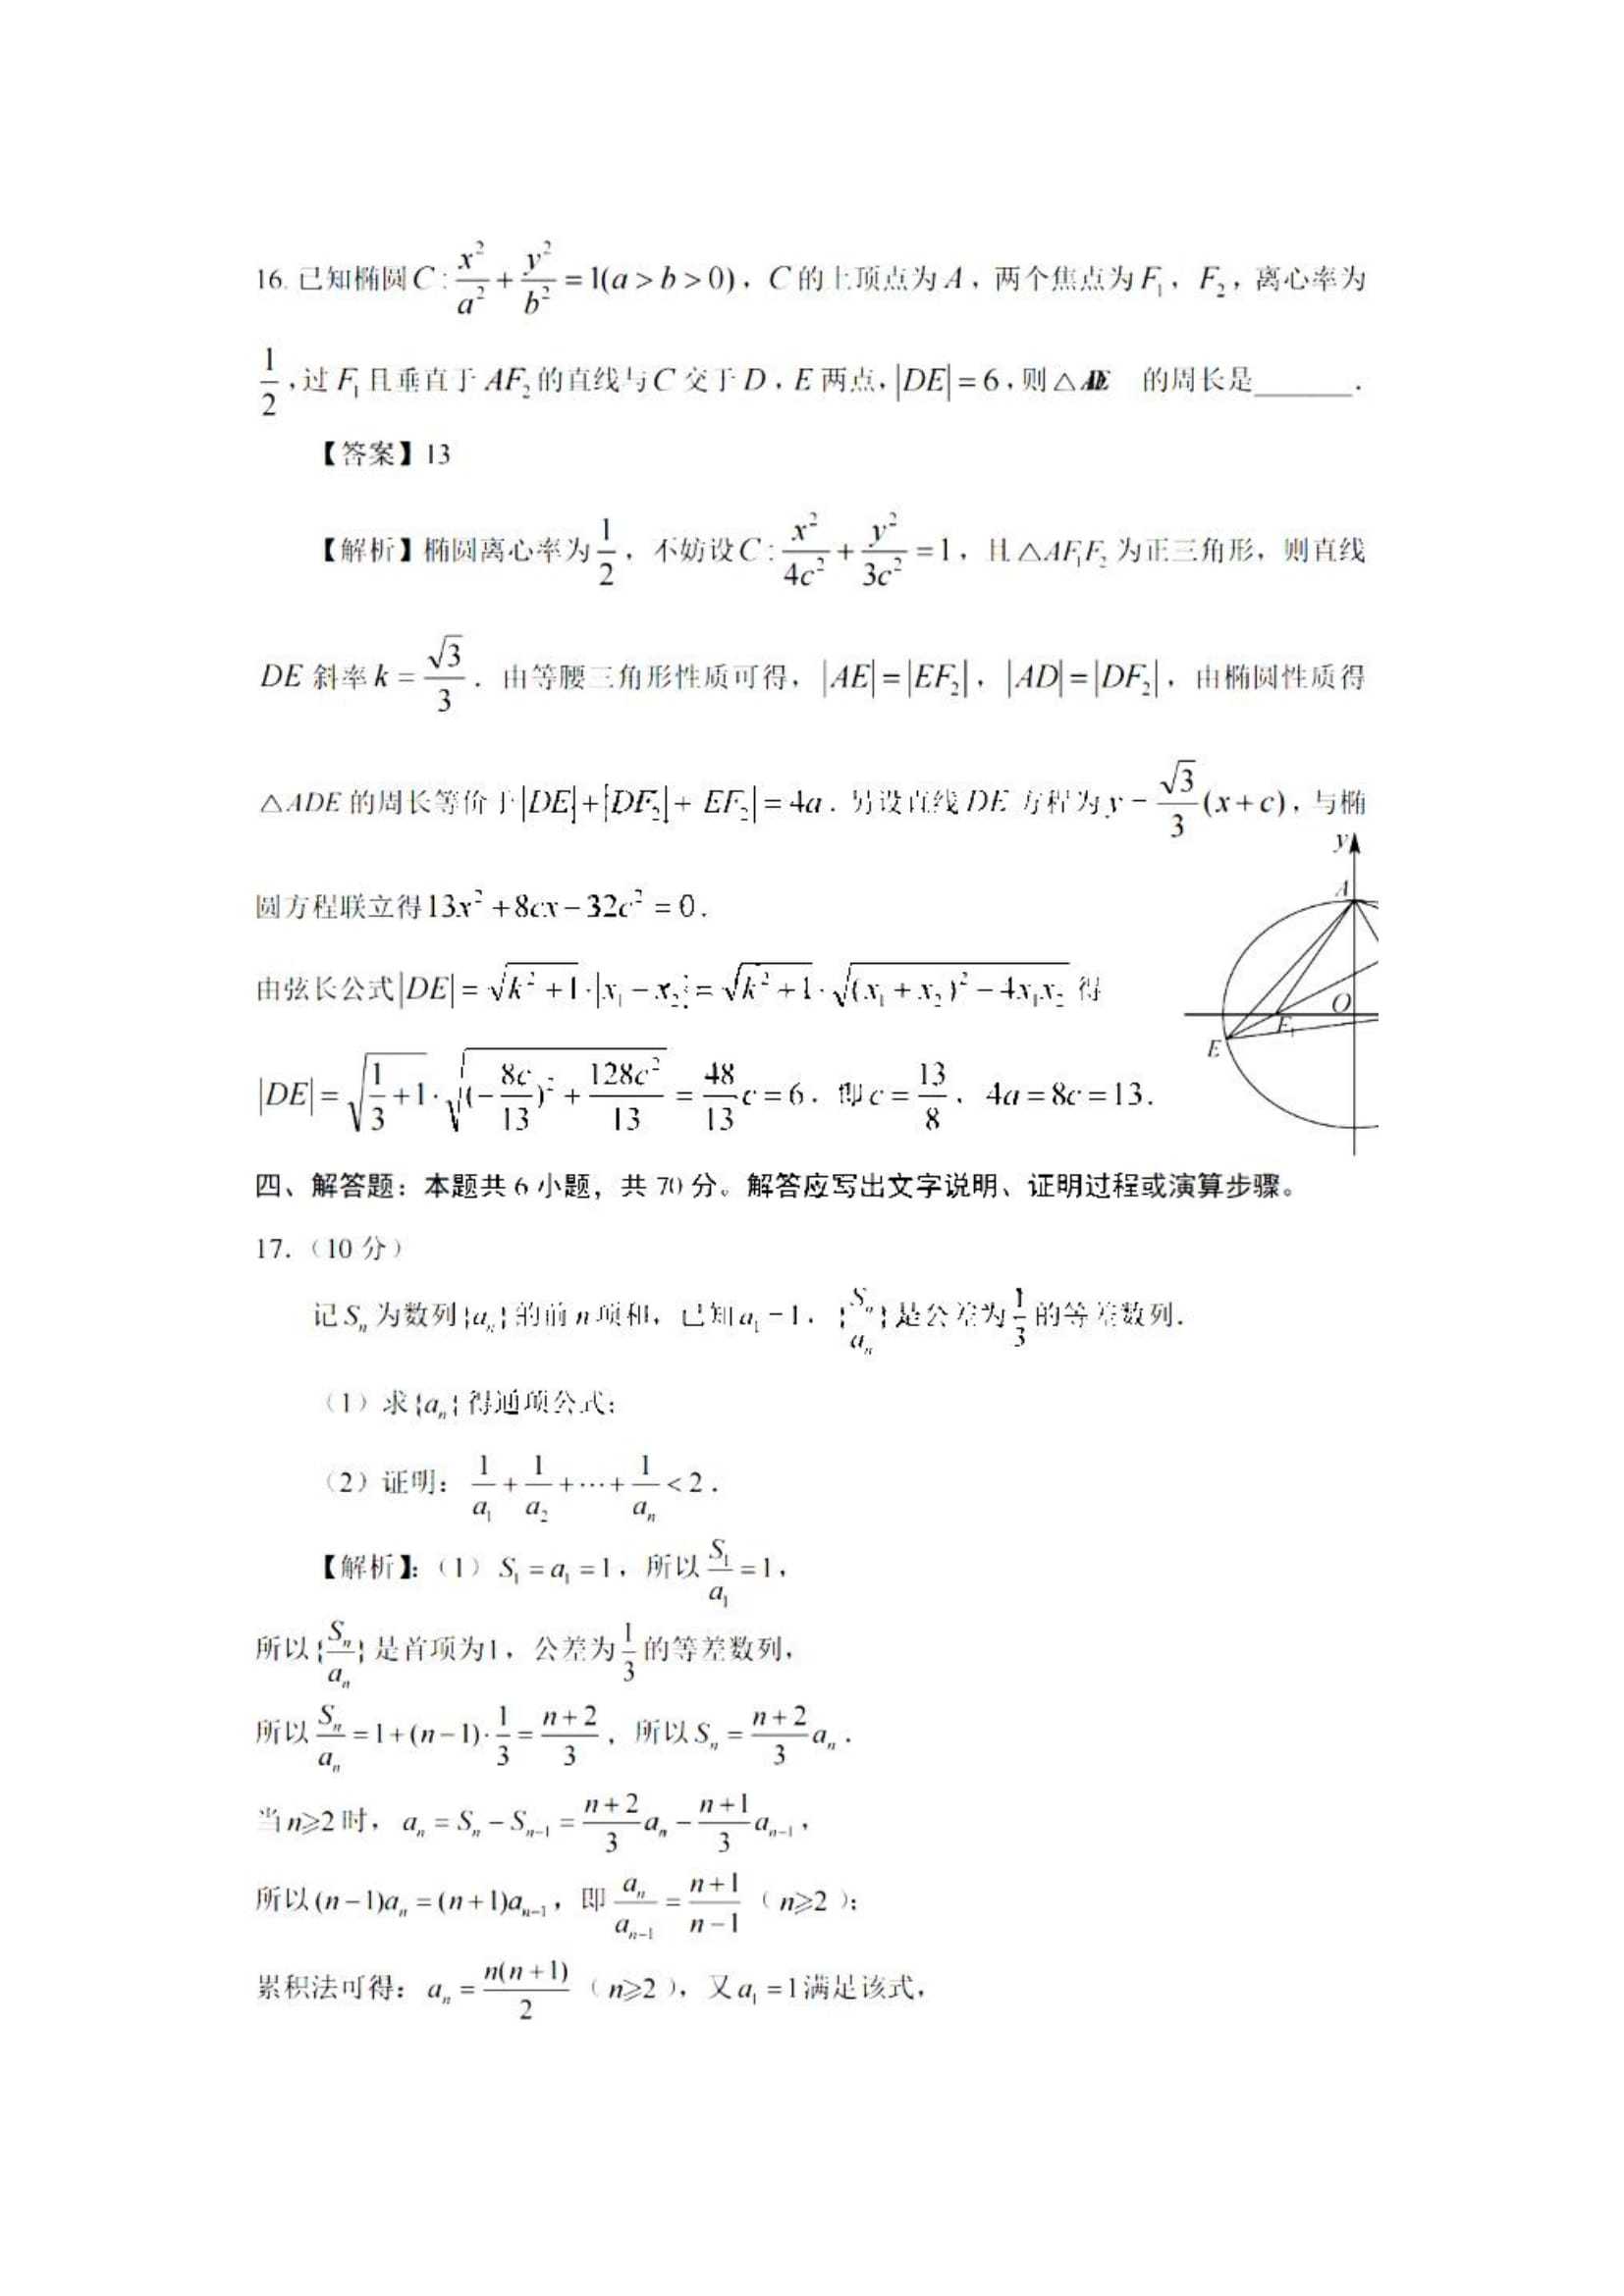 16. 已知椭圆 C : x²/a² + y²/b² = 1(a > b > 0)，C 的上顶点为 A，两个焦点为 F₁，F₂，离心率为
1/2，过 F₁ 且垂直于 AF₂ 的直线与 C 交于 D，E 两点，|DE| = 6，则 △ADE 的周长是______．
【答案】13
【解析】椭圆离心率为 1/2，不妨设 C : x²/4c² + y²/3c² = 1，且 △AF₁F₂ 为正三角形，则直线
DE 斜率 k = √3/3．由等腰三角形性质可得，|AE| = |EF₂|，|AD| = |DF₂|，由椭圆性质得
△ADE 的周长等价于 |DE| + |DF₂| + |EF₂| = 4a．另设直线 DE 方程为 y = √3/3 (x + c)，与椭
圆方程联立得 13x² + 8cx − 32c² = 0．
由弦长公式 |DE| = √(k² + 1) · |x₁ − x₂| = √(k² + 1) · √((x₁ + x₂)² − 4x₁x₂) 得
|DE| = √(1/3 + 1) · √((−8c/13)² + 128c²/13) = 48/13 c = 6．即 c = 13/8，4a = 8c = 13．
y
A
O
F₁
E
四、解答题：本题共 6 小题，共 70 分。解答应写出文字说明、证明过程或演算步骤。
17.（10 分）
记 Sₙ 为数列 {aₙ} 的前 n 项和，已知 a₁ = 1，{Sₙ/aₙ} 是公差为 1/3 的等差数列．
（1）求 {aₙ} 得通项公式；
（2）证明：1/a₁ + 1/a₂ + ⋯ + 1/aₙ < 2．
【解析】：（1）S₁ = a₁ = 1，所以 S₁/a₁ = 1，
所以 {Sₙ/aₙ} 是首项为 1，公差为 1/3 的等差数列，
所以 Sₙ/aₙ = 1 + (n − 1) · 1/3 = (n + 2)/3，所以 Sₙ = (n + 2)/3 aₙ．
当 n⩾2 时，aₙ = Sₙ − Sₙ₋₁ = (n + 2)/3 aₙ − (n + 1)/3 aₙ₋₁，
所以 (n − 1)aₙ = (n + 1)aₙ₋₁，即 aₙ/aₙ₋₁ = (n + 1)/(n − 1)（n⩾2）；
累积法可得：aₙ = n(n + 1)/2（n⩾2），又 a₁ = 1 满足该式，